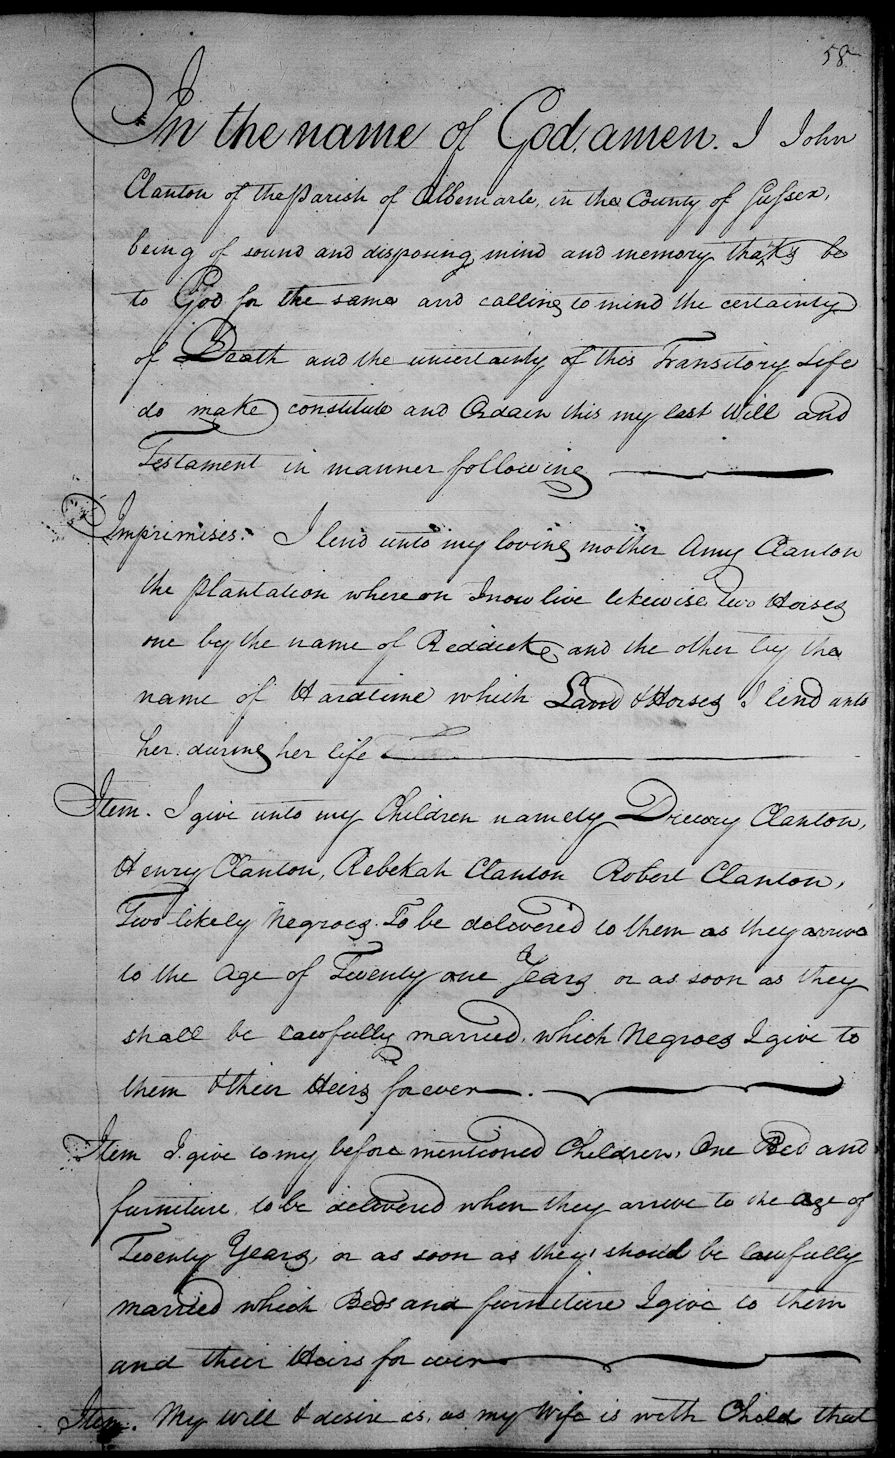 58
In the name of God, amen. I John
Clanton of the Parish of Albemarle, in the County of Sussex,
being of sound and disposing mind and memory thak's be
to God for the same and calling to mind the certainty
of Death and the uncertainty of this Transitory Life
do make constitute and Ordain this my last Will and
Testament in manner following
Imprimises. I lend unto my loving mother Amy Clanton
the plantation whereon I now live likewise two Horses
one by the name of Reddick and the other by the
name of Hardtime which Land & Horses I lend unto
her during her life
Item. I give unto my Children namely Drewry Clanton,
Henry Clanton, Rebekah Clanton Robert Clanton,
Two likely Negroes. To be delivered to them as they arrive
to the age of Twenty one Years or as soon as they
shall be lawfully married, which Negroes I give to
them & their Heirs for ever.
Item I give to my before mentioned Children, One Bed and
furniture to be delivered when they arrive to the age of
Twenty Years, or as soon as they should be lawfully
married which Beds and furniture I give to them
and their Heirs for ever
Item. My will & desire is, as my Wife is with Child that